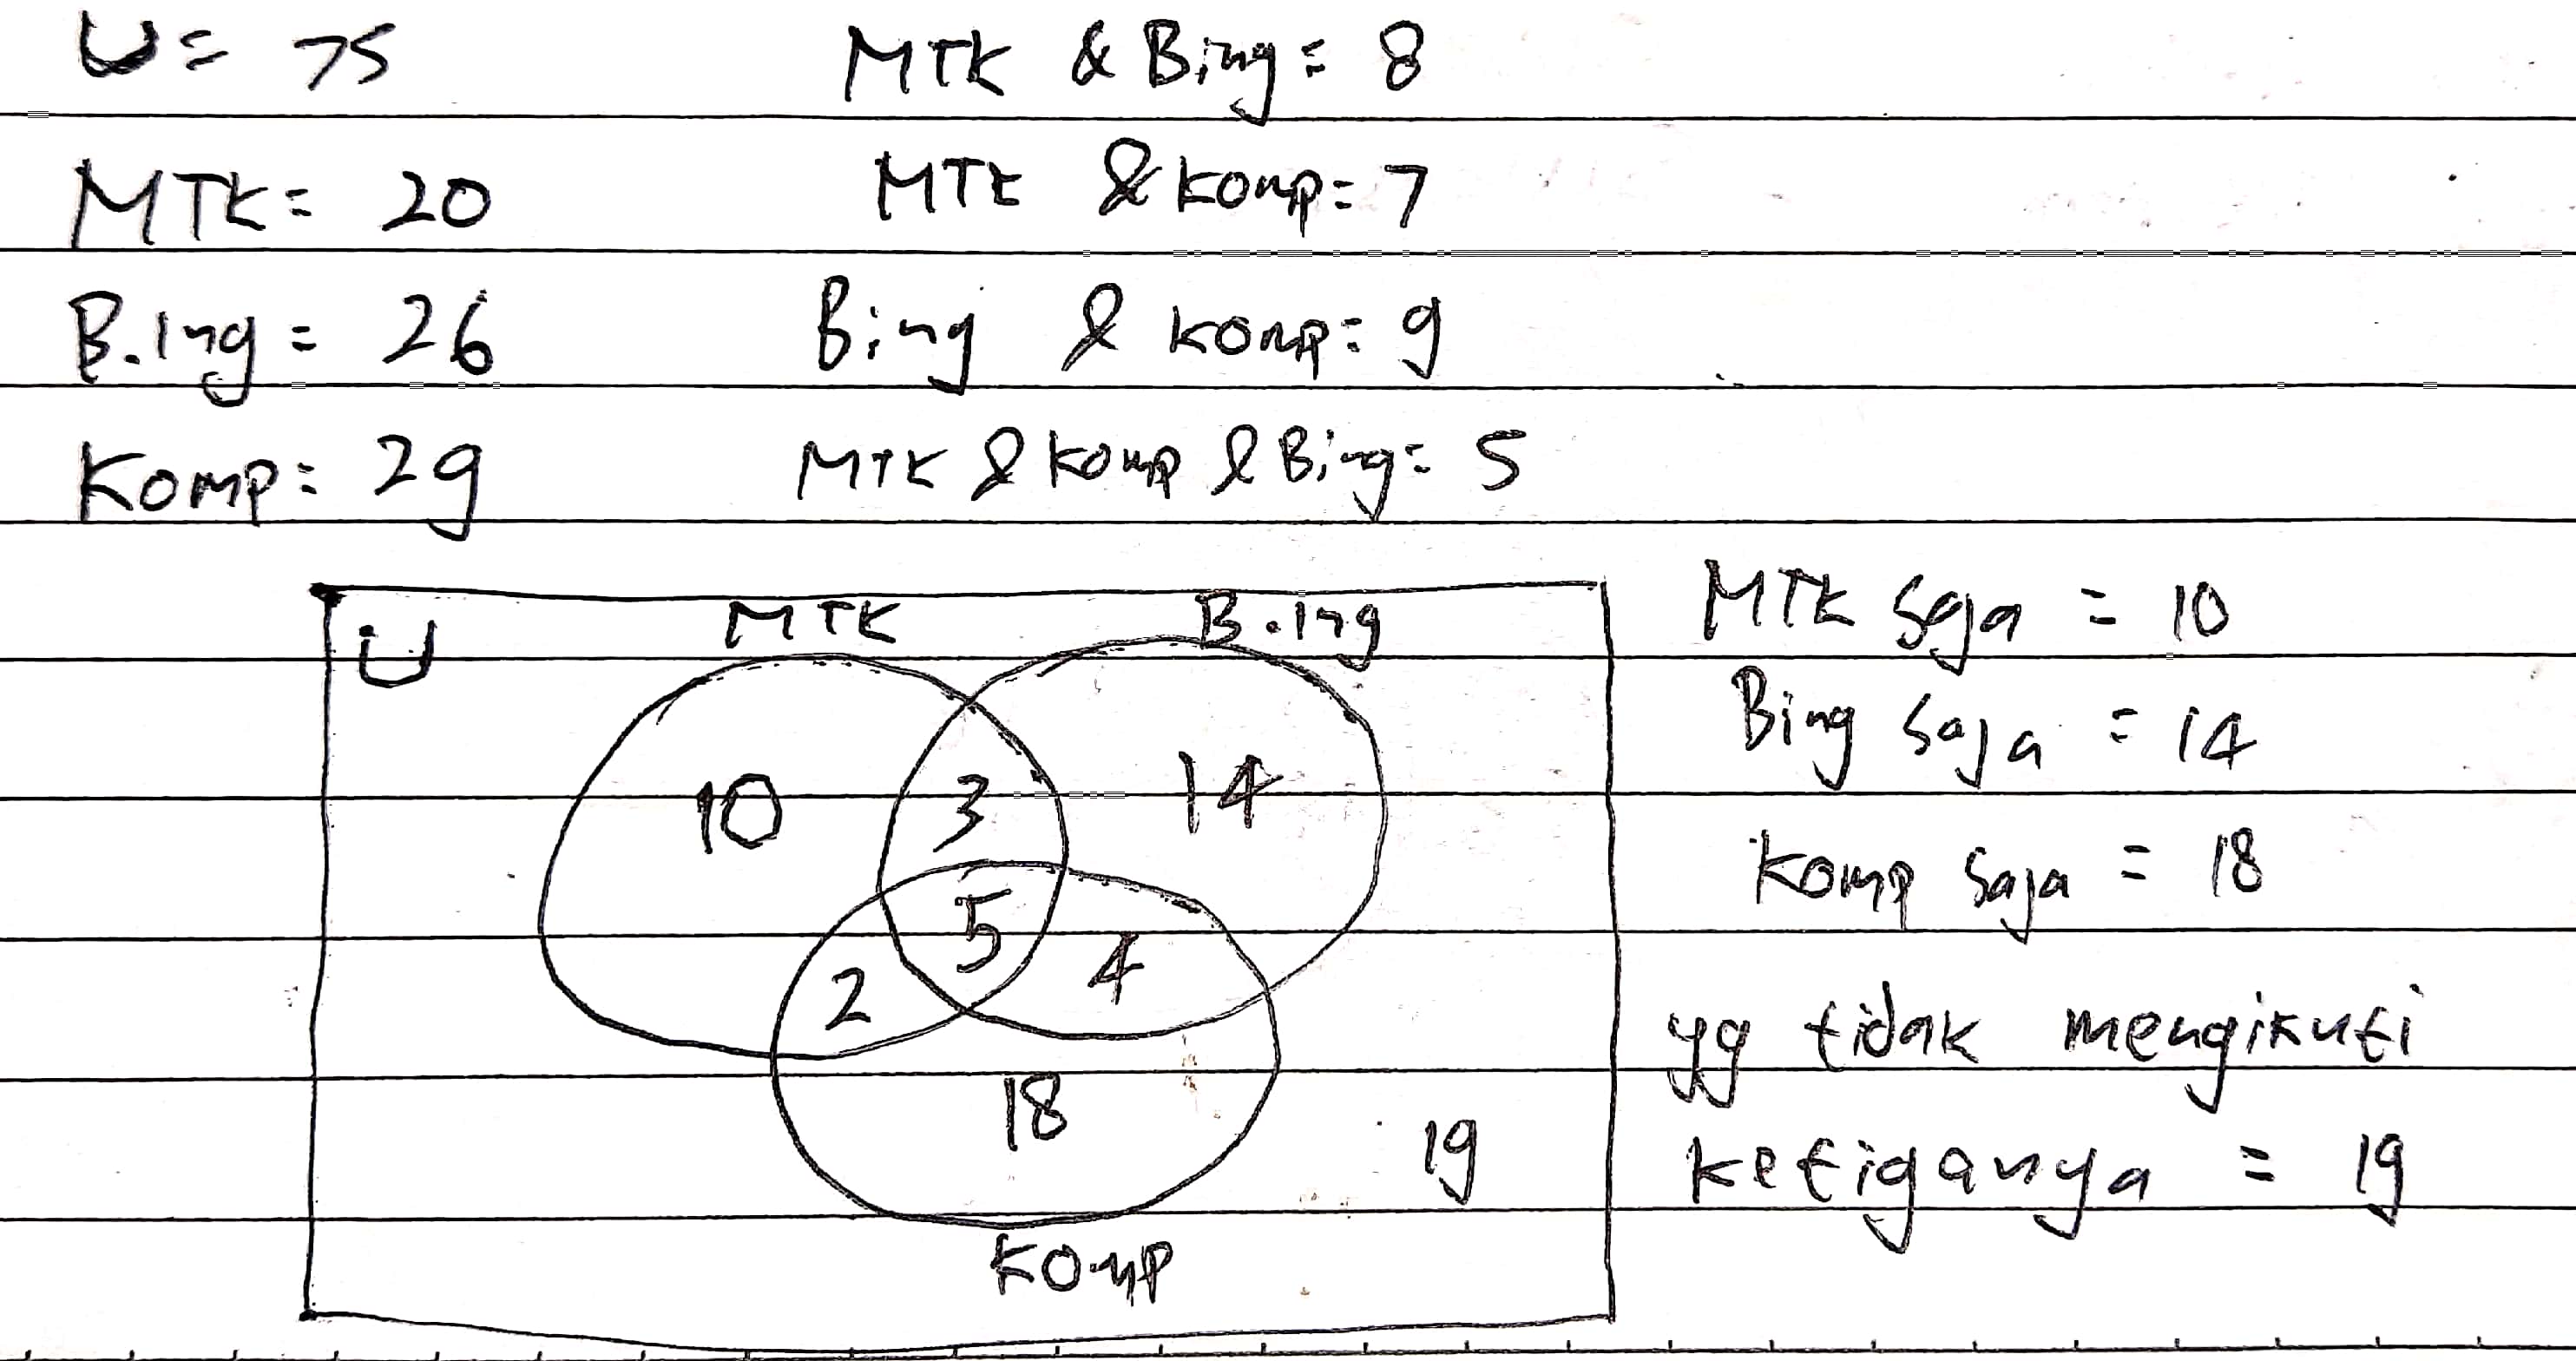 U = 75
MTK & Bing = 8
MTK = 20
MTK & Komp = 7
B.Ing = 26
Bing & Komp = 9
Komp = 29
MTK & Komp & Bing = 5
U
MTK
B.Ing
10
3
14
5
2
4
18
19
Komp
MTK Saja = 10
Bing Saja = 14
Komp Saja = 18
yg tidak mengikuti
ketiganya = 19